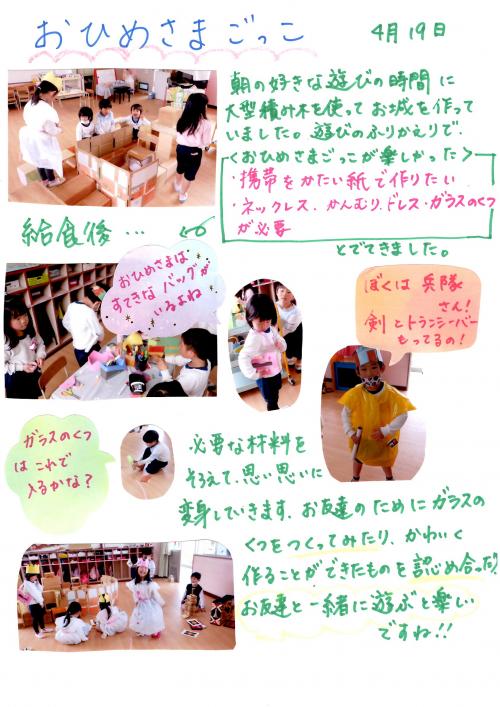 おひめさまごっこ
4月19日
朝の好きな遊びの時間に
大型積み木を使ってお城を作って
いました。遊びのふりかえりで、
<おひめさまごっこが楽しかった>
・携帯をかたい紙で作りたい
・ネックレス、かんむり、ドレス・ガラスのくつ
が必要
とでてきました。
給食後…
おひめさまは
すてきなバッグが
いるよね
ぼくは兵隊
さん!
剣とトランシーバー
もってるの!
ガラスのくつ
はこれで
入るかな?
必要な材料を
そろえて、思い思いに
変身していきます。お友達のためにガラスの
くつをつくってみたり、かわいく
作ることができたものを認め合ったり
お友達と一緒に遊ぶと楽しい
ですね!!